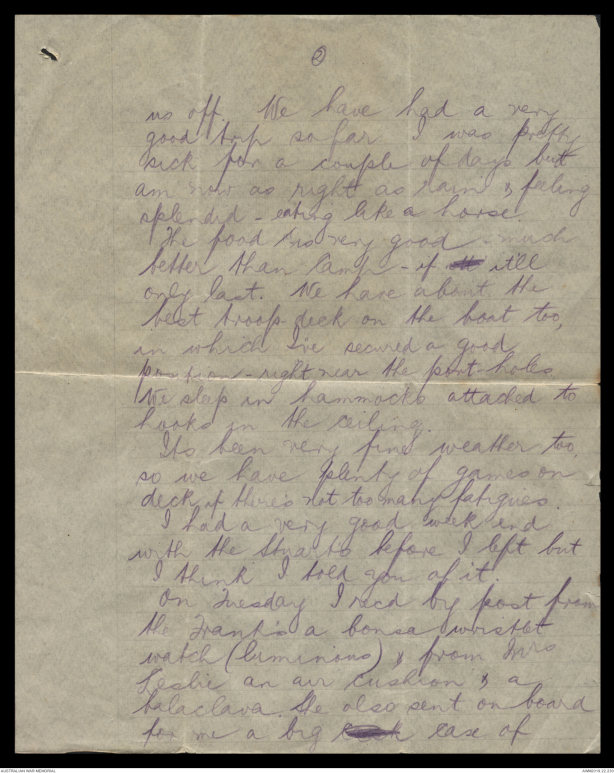 2
us off. We have had a very
good trip so far. I was pretty
sick for a couple of days but
am now as right as rain & feeling
splendid - eating like a horse.
The food is very good - much
better than camp - if it'll
only last. We have about the
best troop deck on the boat too,
in which I've secured a good
position - right near the port-holes
We sleep in hammocks attached to
hooks in the ceiling.
Its been very fine weather too,
so we have plenty of games on
deck if there's not too many fatigues.
I had a very good week end
with the Stuarts before I left but
I think I told you of it.
On Tuesday I recd by post from
the Grant's a bonsa wristlet
watch (luminious) & from Mrs
Leslie an air cushion & a
balaclava. She also sent on board
for me a big case of
AUSTRALIAN WAR MEMORIAL